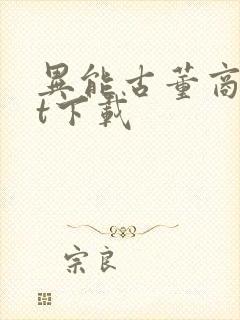 異能古董商
t下載
宗良